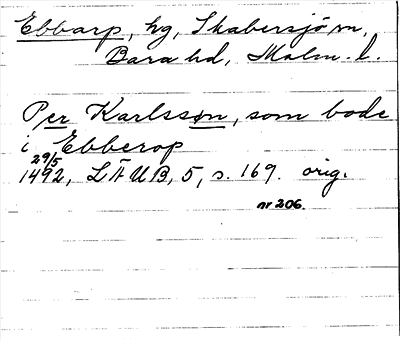 Ebbarp, hg, Skabersjö sn,
Bara hd, Malm. l.
Per Karlsson, som bode
i Ebberop
29/5
1492, LÄUB, 5, s. 169. orig.
nr 206.